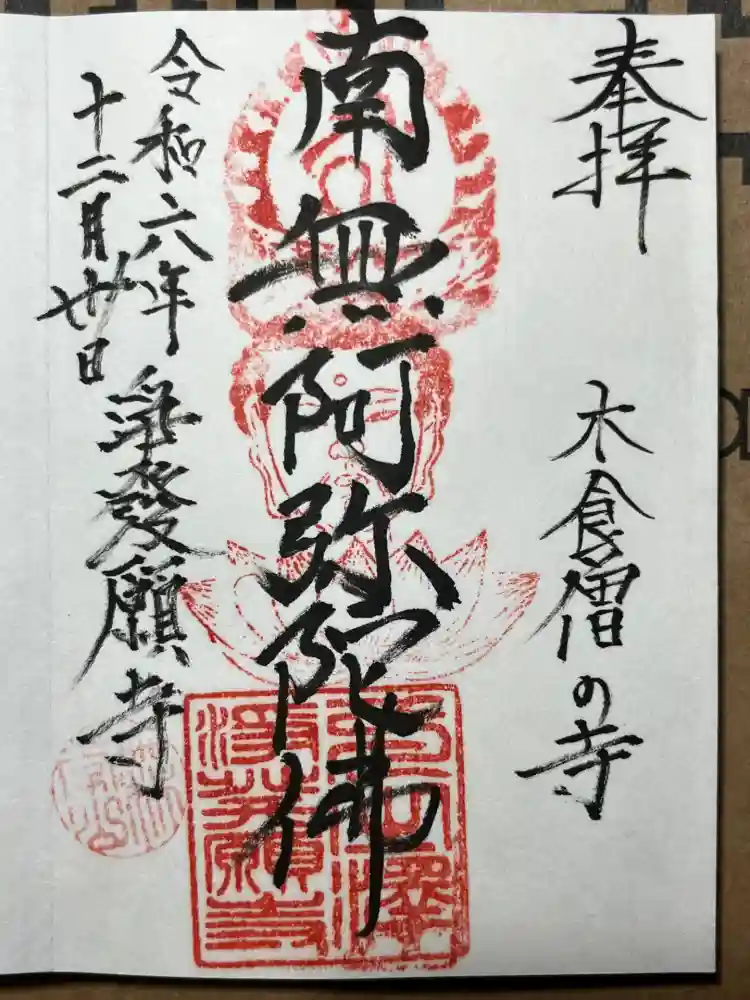 奉拝
木食僧の寺
南無阿弥陀佛
令和六年
十二月廿日
浄發願寺